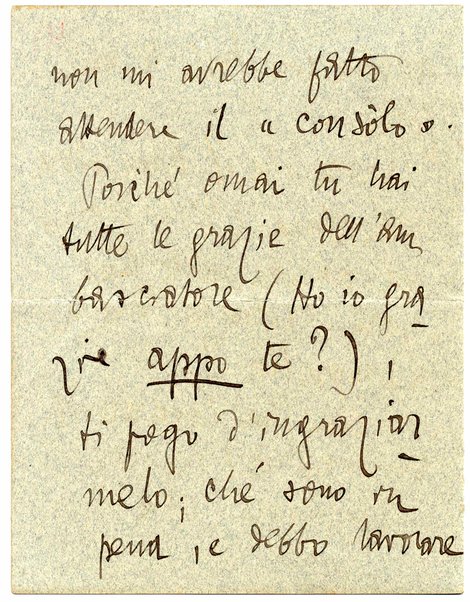 non mi avrebbe fatto
attendere il « consòlo ».
Poiché omai tu hai
tutte le grazie dell'am
basciatore (Ho io gra
zie appo te?),
ti prego d'ingraziar
melo; ché sono in
pena, e debbo lavorare